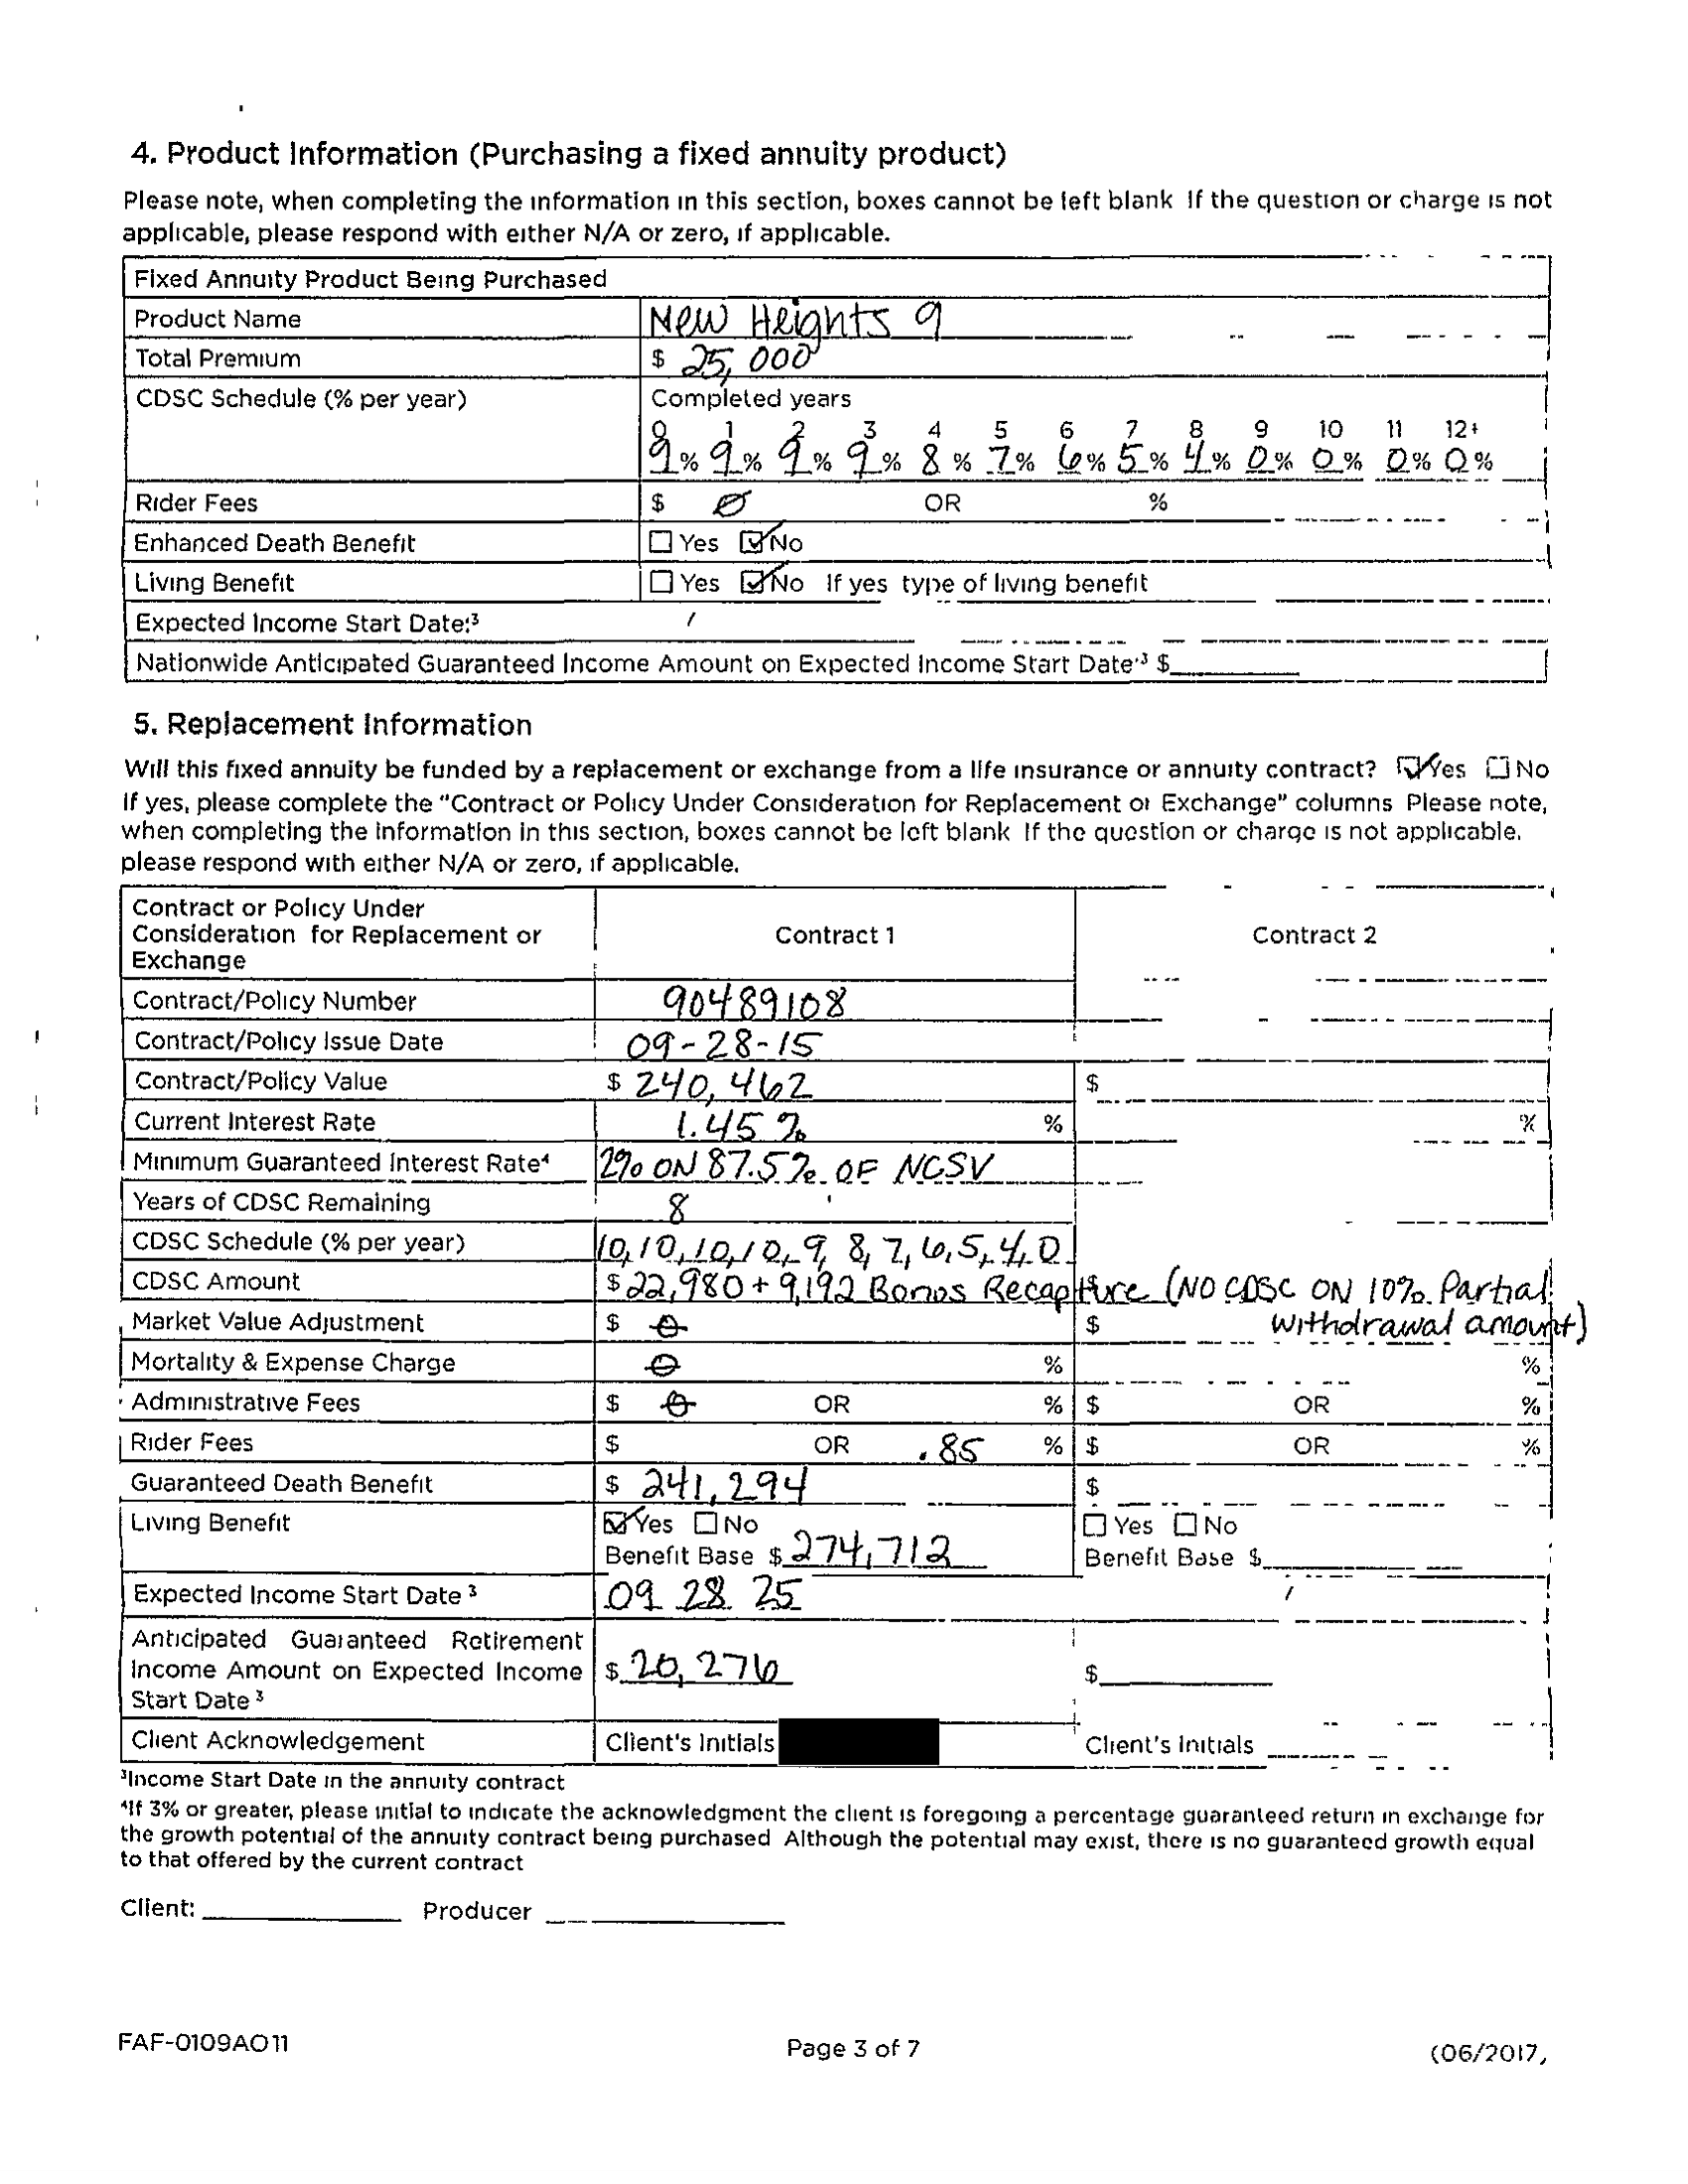 4. Product Information (Purchasing a fixed annuity product)
Please note, when completing the information in this section, boxes cannot be left blank If the question or charge is not
applicable, please respond with either N/A or zero, if applicable.
Fixed Annuity Product Being Purchased
Product Name New Heights 9
Total Premium $ 25,000
CDSC Schedule (% per year) Completed years
0 1 2 3 4 5 6 7 8 9 10 11 12+
9% 9% 9% 9% 8% 7% 6% 5% 4% 0% 0% 0% 0%
Rider Fees $ Ø OR %
Enhanced Death Benefit ☐ Yes ☑ No
Living Benefit ☐ Yes ☑ No If yes type of living benefit
Expected Income Start Date:³ /
Nationwide Anticipated Guaranteed Income Amount on Expected Income Start Date³ $
5. Replacement Information
Will this fixed annuity be funded by a replacement or exchange from a life insurance or annuity contract? ☑ Yes ☐ No
If yes, please complete the "Contract or Policy Under Consideration for Replacement or Exchange" columns Please note,
when completing the information in this section, boxes cannot be left blank If the question or charge is not applicable,
please respond with either N/A or zero, if applicable.
Contract or Policy Under
Consideration for Replacement or Contract 1 Contract 2
Exchange
Contract/Policy Number 90489108
Contract/Policy Issue Date 09-28-15
Contract/Policy Value $ 240,462 $
Current Interest Rate 1.45% % %
Minimum Guaranteed Interest Rate⁴ 2% ON 87.5% OF NCSV
Years of CDSC Remaining 8
CDSC Schedule (% per year) 10,10,10,10,9,8,7,6,5,4,0
CDSC Amount $ 22,980 + 9,192 Bonus Recapture (NO CDSC ON 10% Partial
Market Value Adjustment $ Ø $ withdrawal amount)
Mortality & Expense Charge Ø % %
Administrative Fees $ Ø OR % $ OR %
Rider Fees $ OR .85 % $ OR %
Guaranteed Death Benefit $ 241,294 $
Living Benefit ☑ Yes ☐ No ☐ Yes ☐ No
Benefit Base $ 274,712 Benefit Base $
Expected Income Start Date ³ 09 28 25 /
Anticipated Guaranteed Retirement
Income Amount on Expected Income $ 20,276 $
Start Date ³
Client Acknowledgement Client's Initials Client's Initials
³Income Start Date in the annuity contract
⁴If 3% or greater, please initial to indicate the acknowledgment the client is foregoing a percentage guaranteed return in exchange for
the growth potential of the annuity contract being purchased Although the potential may exist, there is no guaranteed growth equal
to that offered by the current contract
Client: Producer
FAF-0109AO11 Page 3 of 7 (06/2017,